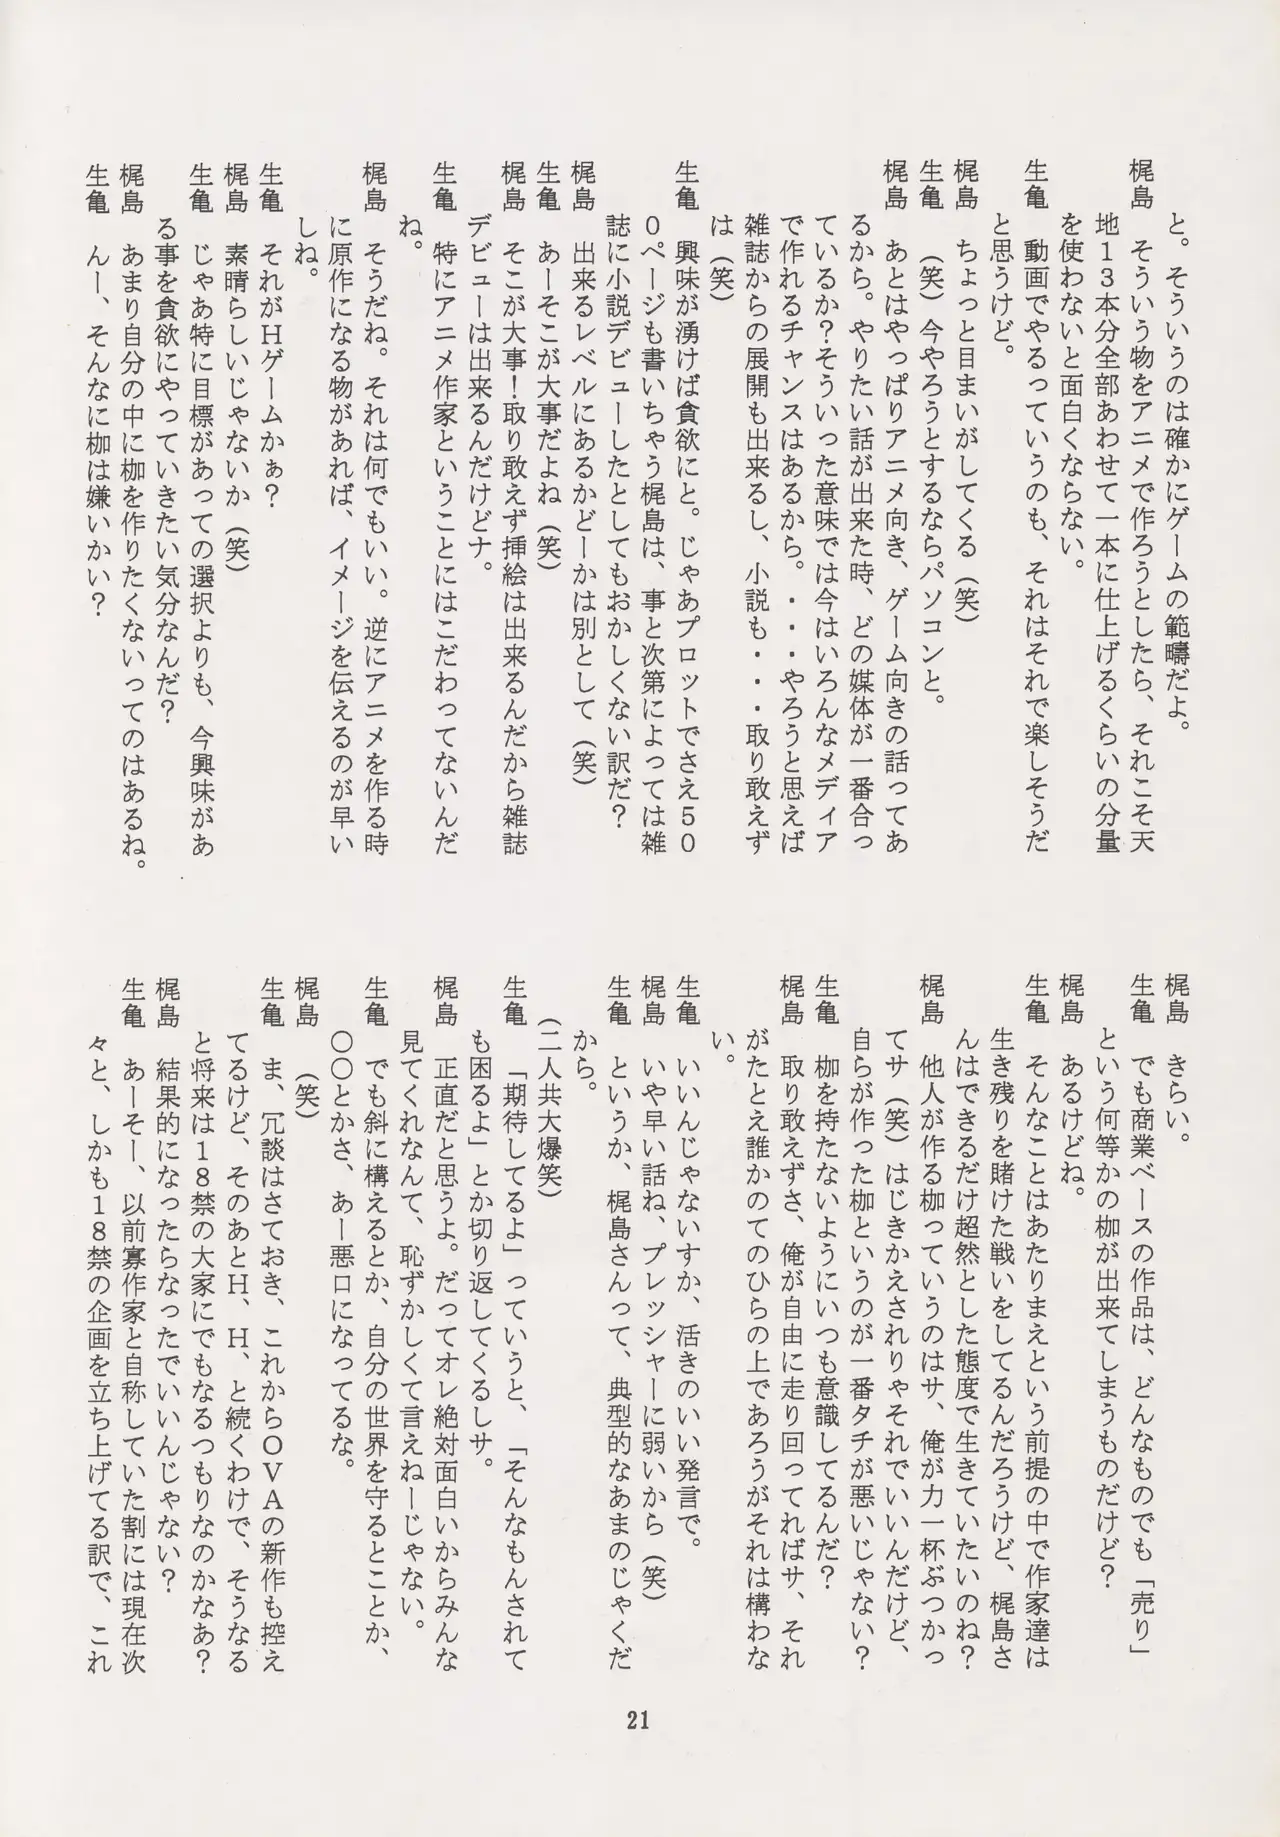 と。そういうのは確かにゲームの範疇だよ。
梶島　そういう物をアニメで作ろうとしたら、それこそ天
地13本分全部あわせて一本に仕上げるくらいの分量
を使わないと面白くならない。
生亀　動画でやるっていうのも、それはそれで楽しそうだ
と思うけど。
梶島　ちょっと目まいがしてくる（笑）
生亀　（笑）今やろうとするならパソコンと。
梶島　あとはやっぱりアニメ向き、ゲーム向きの話ってあ
るから。やりたい話が出来た時、どの媒体が一番合っ
ているか？そういった意味では今はいろんなメディア
で作れるチャンスはあるから。・・・やろうと思えば
雑誌からの展開も出来るし、小説も・・・取り敢えず
は（笑）
生亀　興味が湧けば貪欲にと。じゃあプロットでさえ50
0ページも書いちゃう梶島は、事と次第によっては雑
誌に小説デビューしたとしてもおかしくない訳だ？
梶島　出来るレベルにあるかどーかは別として（笑）
生亀　あーそこが大事だよね（笑）
梶島　そこが大事！取り敢えず挿絵は出来るんだから雑誌
デビューは出来るんだけどナ。
生亀　特にアニメ作家ということにはこだわってないんだ
ね。
梶島　そうだね。それは何でもいい。逆にアニメを作る時
に原作になる物があれば、イメージを伝えるのが早い
しね。
生亀　それがHゲームかぁ？
梶島　素晴らしいじゃないか（笑）
生亀　じゃあ特に目標があっての選択よりも、今興味があ
る事を貪欲にやっていきたい気分なんだ？
梶島　あまり自分の中に枷を作りたくないってのはあるね。
生亀　んー、そんなに枷は嫌いかい？
梶島　きらい。
生亀　でも商業ベースの作品は、どんなものでも「売り」
という何等かの枷が出来てしまうものだけど？
梶島　あるけどね。
生亀　そんなことはあたりまえという前提の中で作家達は
生き残りを賭けた戦いをしてるんだろうけど、梶島さ
んはできるだけ超然とした態度で生きていたいのね？
梶島　他人が作る枷っていうのはサ、俺が力一杯ぶつかっ
てサ（笑）はじきかえされりゃそれでいいんだけど、
自らが作った枷というのが一番タチが悪いじゃない？
生亀　枷を持たないようにいつも意識してるんだ？
梶島　取り敢えずさ、俺が自由に走り回ってればサ、それ
がたとえ誰かのてのひらの上であろうがそれは構わな
い。
生亀　いいんじゃないすか、活きのいい発言で。
梶島　いや早い話ね、プレッシャーに弱いから（笑）
生亀　というか、梶島さんって、典型的なあまのじゃくだ
から。
（二人共大爆笑）
生亀　「期待してるよ」っていうと、「そんなもんされて
も困るよ」とか切り返してくるしサ。
梶島　正直だと思うよ。だってオレ絶対面白いからみんな
見てくれなんて、恥ずかしくて言えねーじゃない。
生亀　でも斜に構えるとか、自分の世界を守るとことか、
〇〇とかさ、あー悪口になってるな。
梶島　（笑）
生亀　ま、冗談はさておき、これからOVAの新作も控え
てるけど、そのあとH、H、と続くわけで、そうなる
と将来は18禁の大家にでもなるつもりなのかなあ？
梶島　結果的になったらなったでいいんじゃない？
生亀　あーそー、以前寡作家と自称していた割には現在次
々と、しかも18禁の企画を立ち上げてる訳で、これ
21